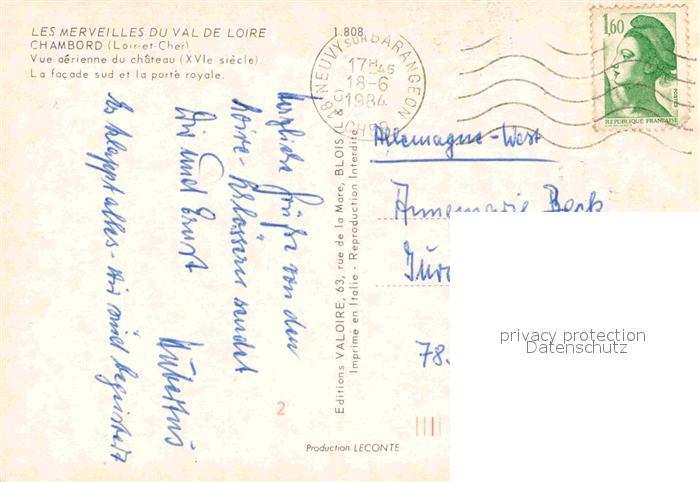 LES MERVEILLES DU VAL DE LOIRE
CHAMBORD (Loir-et-Cher)
Vue aérienne du château (XVIe siècle)
La façade sud et la porte royale.
1.808
18 NEUVY SUR BARANGEON
17H45
18-6
1984
CHER
1,60
POSTES
REPUBLIQUE FRANÇAISE
Herzliche Grüße von den
Loire-Schlössern sendet
Dir und Ernst
Hubertus
Es klappt alles - wir sind begeistert
Editions VALOIRE, 63, rue de la Mare, BLOIS
Imprimé en Italie - Reproduction Interdite
Allemagne-West
Annemarie Beck
78
2
Production LECONTE
privacy protection
Datenschutz